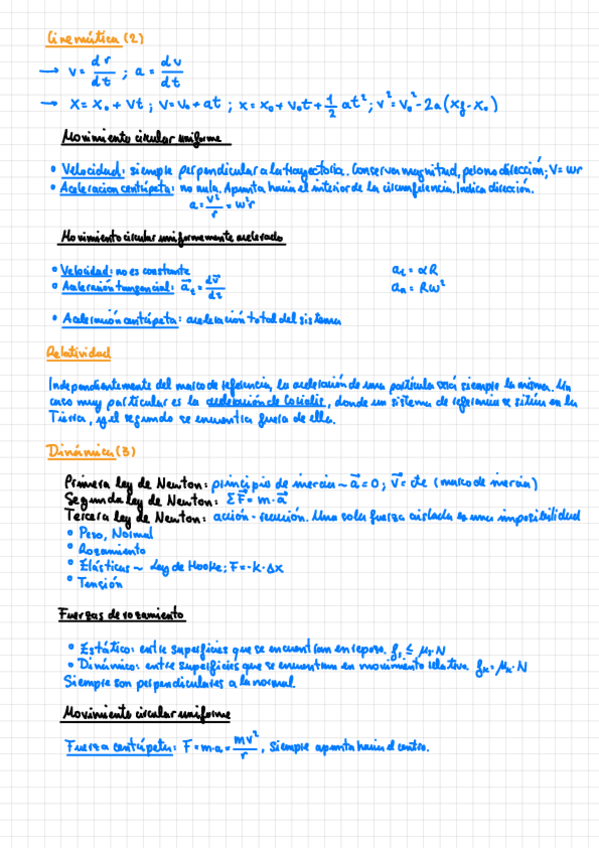 Cinemática (2)
→ v = dr/dt ; a = dv/dt
→ x = x₀ + vt ; v = v₀ + at ; x = x₀ + v₀t + 1/2 at² ; v² = v₀² - 2a(xf - x₀)
Movimiento circular uniforme
• Velocidad: siempre perpendicular a la trayectoria. Conserva magnitud, pero no dirección; V = wr
• Aceleración centrípeta: no nula. Apunta hacia el interior de la circunferencia. Indica dirección.
a = v²/r = w²r
Movimiento circular uniformemente acelerado
• Velocidad: no es constante aₜ = αR
• Aceleración tangencial: a⃗ₜ = dv⃗/dt aₙ = Rω²
• Aceleración centrípeta: aceleración total del sistema
Relatividad
Independientemente del marco de referencia, la aceleración de una partícula será siempre la misma. Un
caso muy particular es la aceleración de Coriolis, donde un sistema de referencia se sitúa en la
Tierra, y el segundo se encuentra fuera de ella.
Dinámica (3)
Primera ley de Newton: principio de inercia ~ a⃗ = 0 ; v⃗ = cte (marco de inercia)
Segunda ley de Newton: ΣF⃗ = m·a⃗
Tercera ley de Newton: acción - reacción. Una sola fuerza aislada es una imposibilidad
° Peso, Normal
° Rozamiento
° Elásticas ~ Ley de Hooke; F = -k·Δx
° Tensión
Fuerzas de rozamiento
• Estático: entre superficies que se encuentran en reposo. fs ≤ μs·N
• Dinámico: entre superficies que se encuentran en movimiento relativo. fk = μk·N
Siempre son perpendiculares a la normal.
Movimiento circular uniforme
Fuerza centrípeta: F = m·a = mv²/r, siempre apunta hacia el centro.